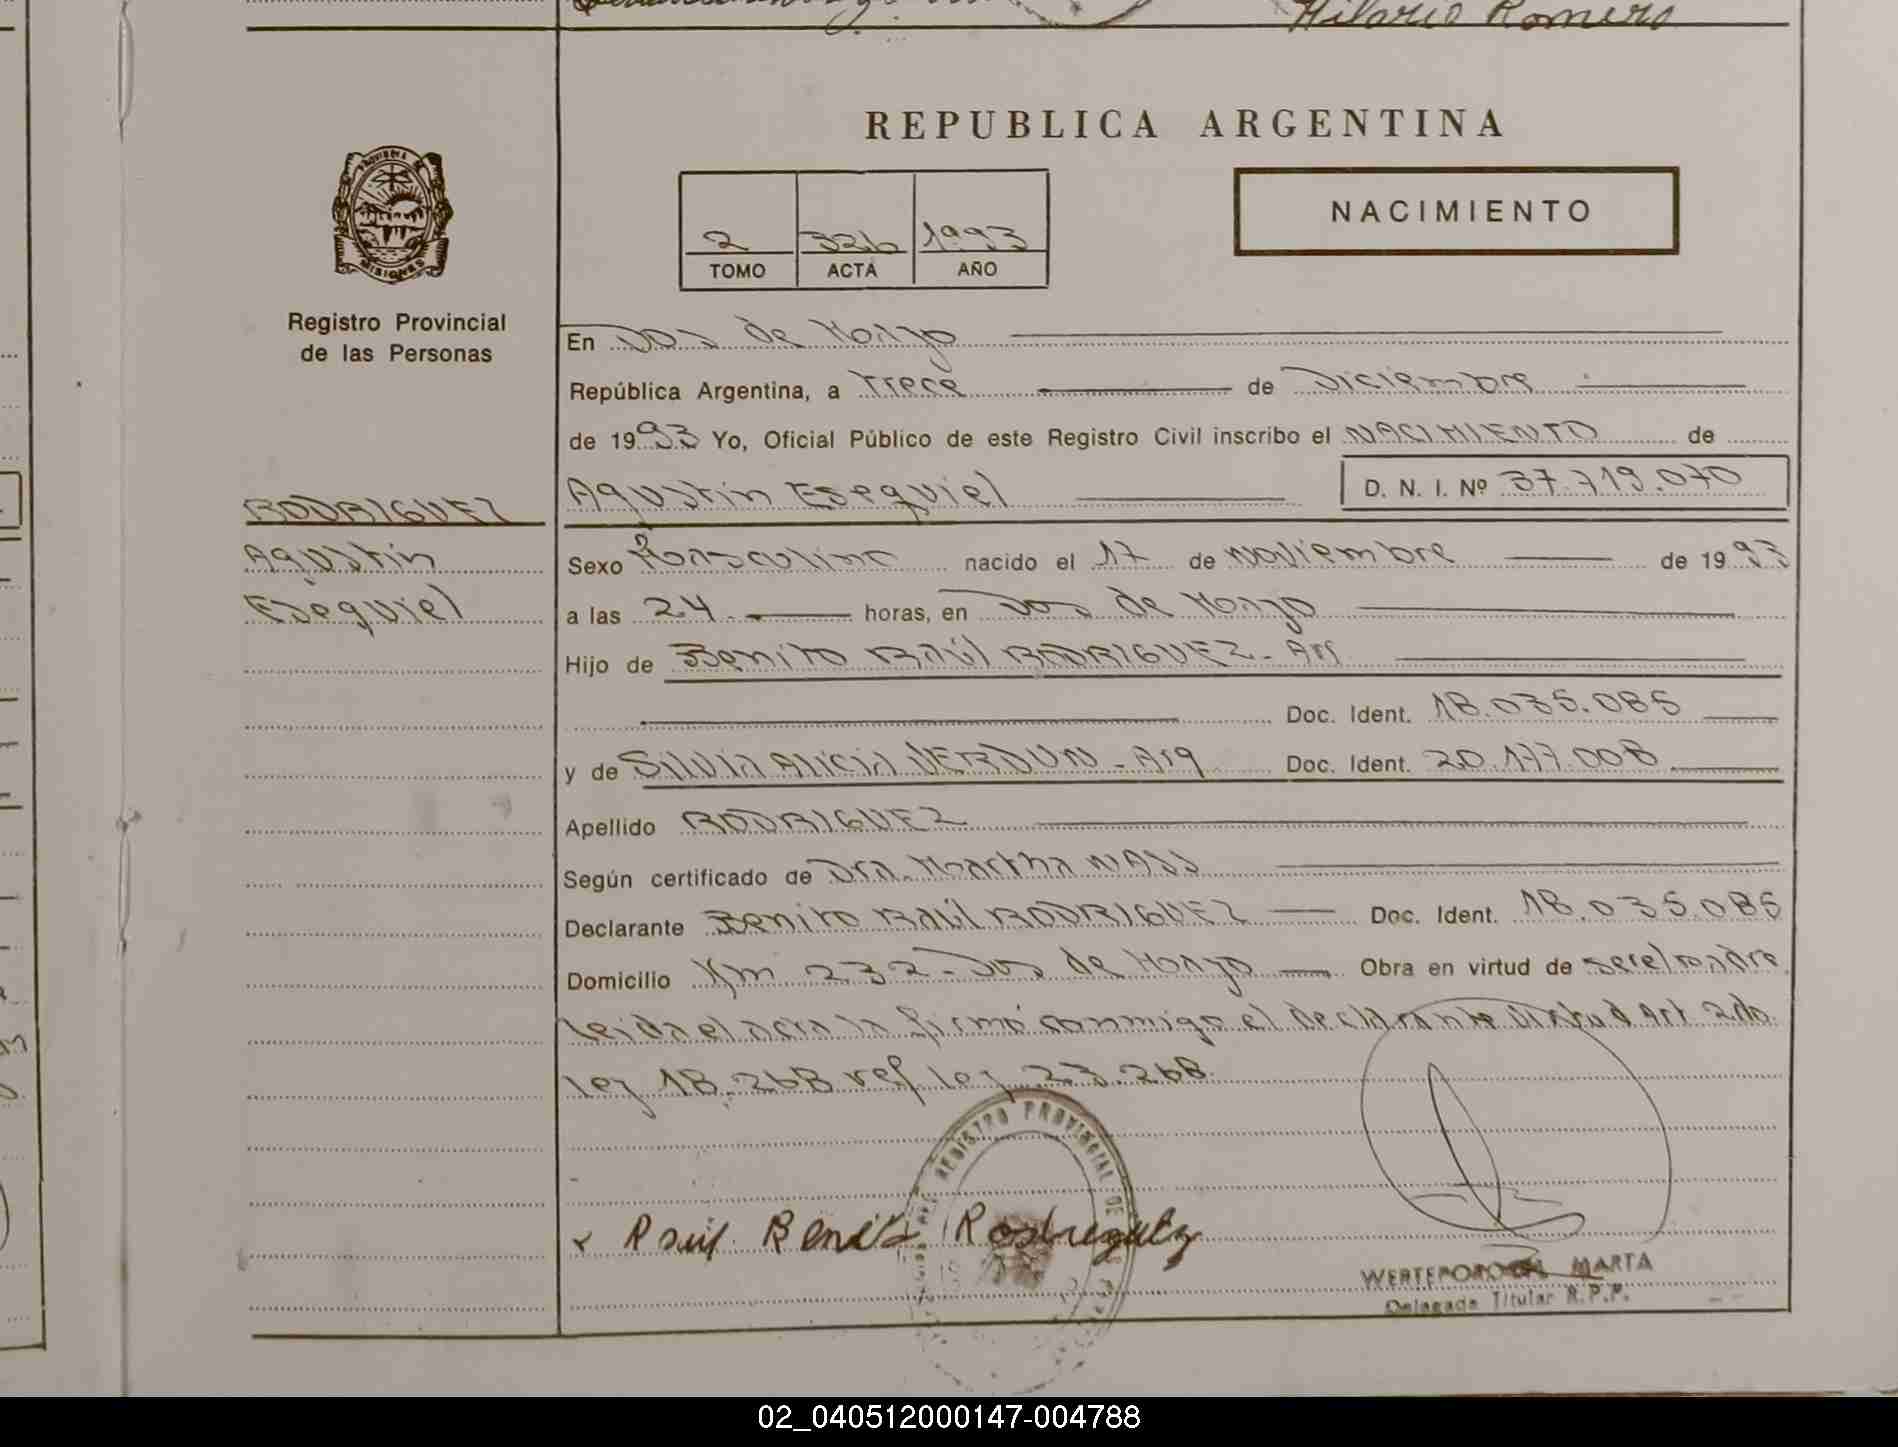 Hilario Romero
REPUBLICA ARGENTINA
PROVINCIA DE
MISIONES
2 326 1993
TOMO ACTA AÑO
NACIMIENTO
Registro Provincial
de las Personas
En Dos de Mayo
República Argentina, a Trece de Diciembre
de 1993 Yo, Oficial Público de este Registro Civil inscribo el NACIMIENTO de
Agustin Esequiel D. N. I. Nº 37.719.070
RODRIGUEZ
Agustin
Esequiel
Sexo Masculino nacido el 17 de Noviembre de 1993
a las 24 horas, en Dos de Mayo
Hijo de Benito Raúl RODRIGUEZ - Arg
Doc. Ident. 18.035.085
y de Silvia Alicia VERDUN - Arg Doc. Ident. 20.177.008
Apellido RODRIGUEZ
Según certificado de Dra. Martha
Declarante Benito Raúl RODRIGUEZ Doc. Ident. 18.035.085
Domicilio Km 232 - Dos de Mayo Obra en virtud de ser el padre
leida el acta la firmó conmigo el declarante Art 2do.
ley 18.268 ref ley 23.268
REGISTRO PROVINCIAL DE
x Raul Benito Rodriguez
MARTA
Delegada Titular R.P.P.
02_040512000147-004788